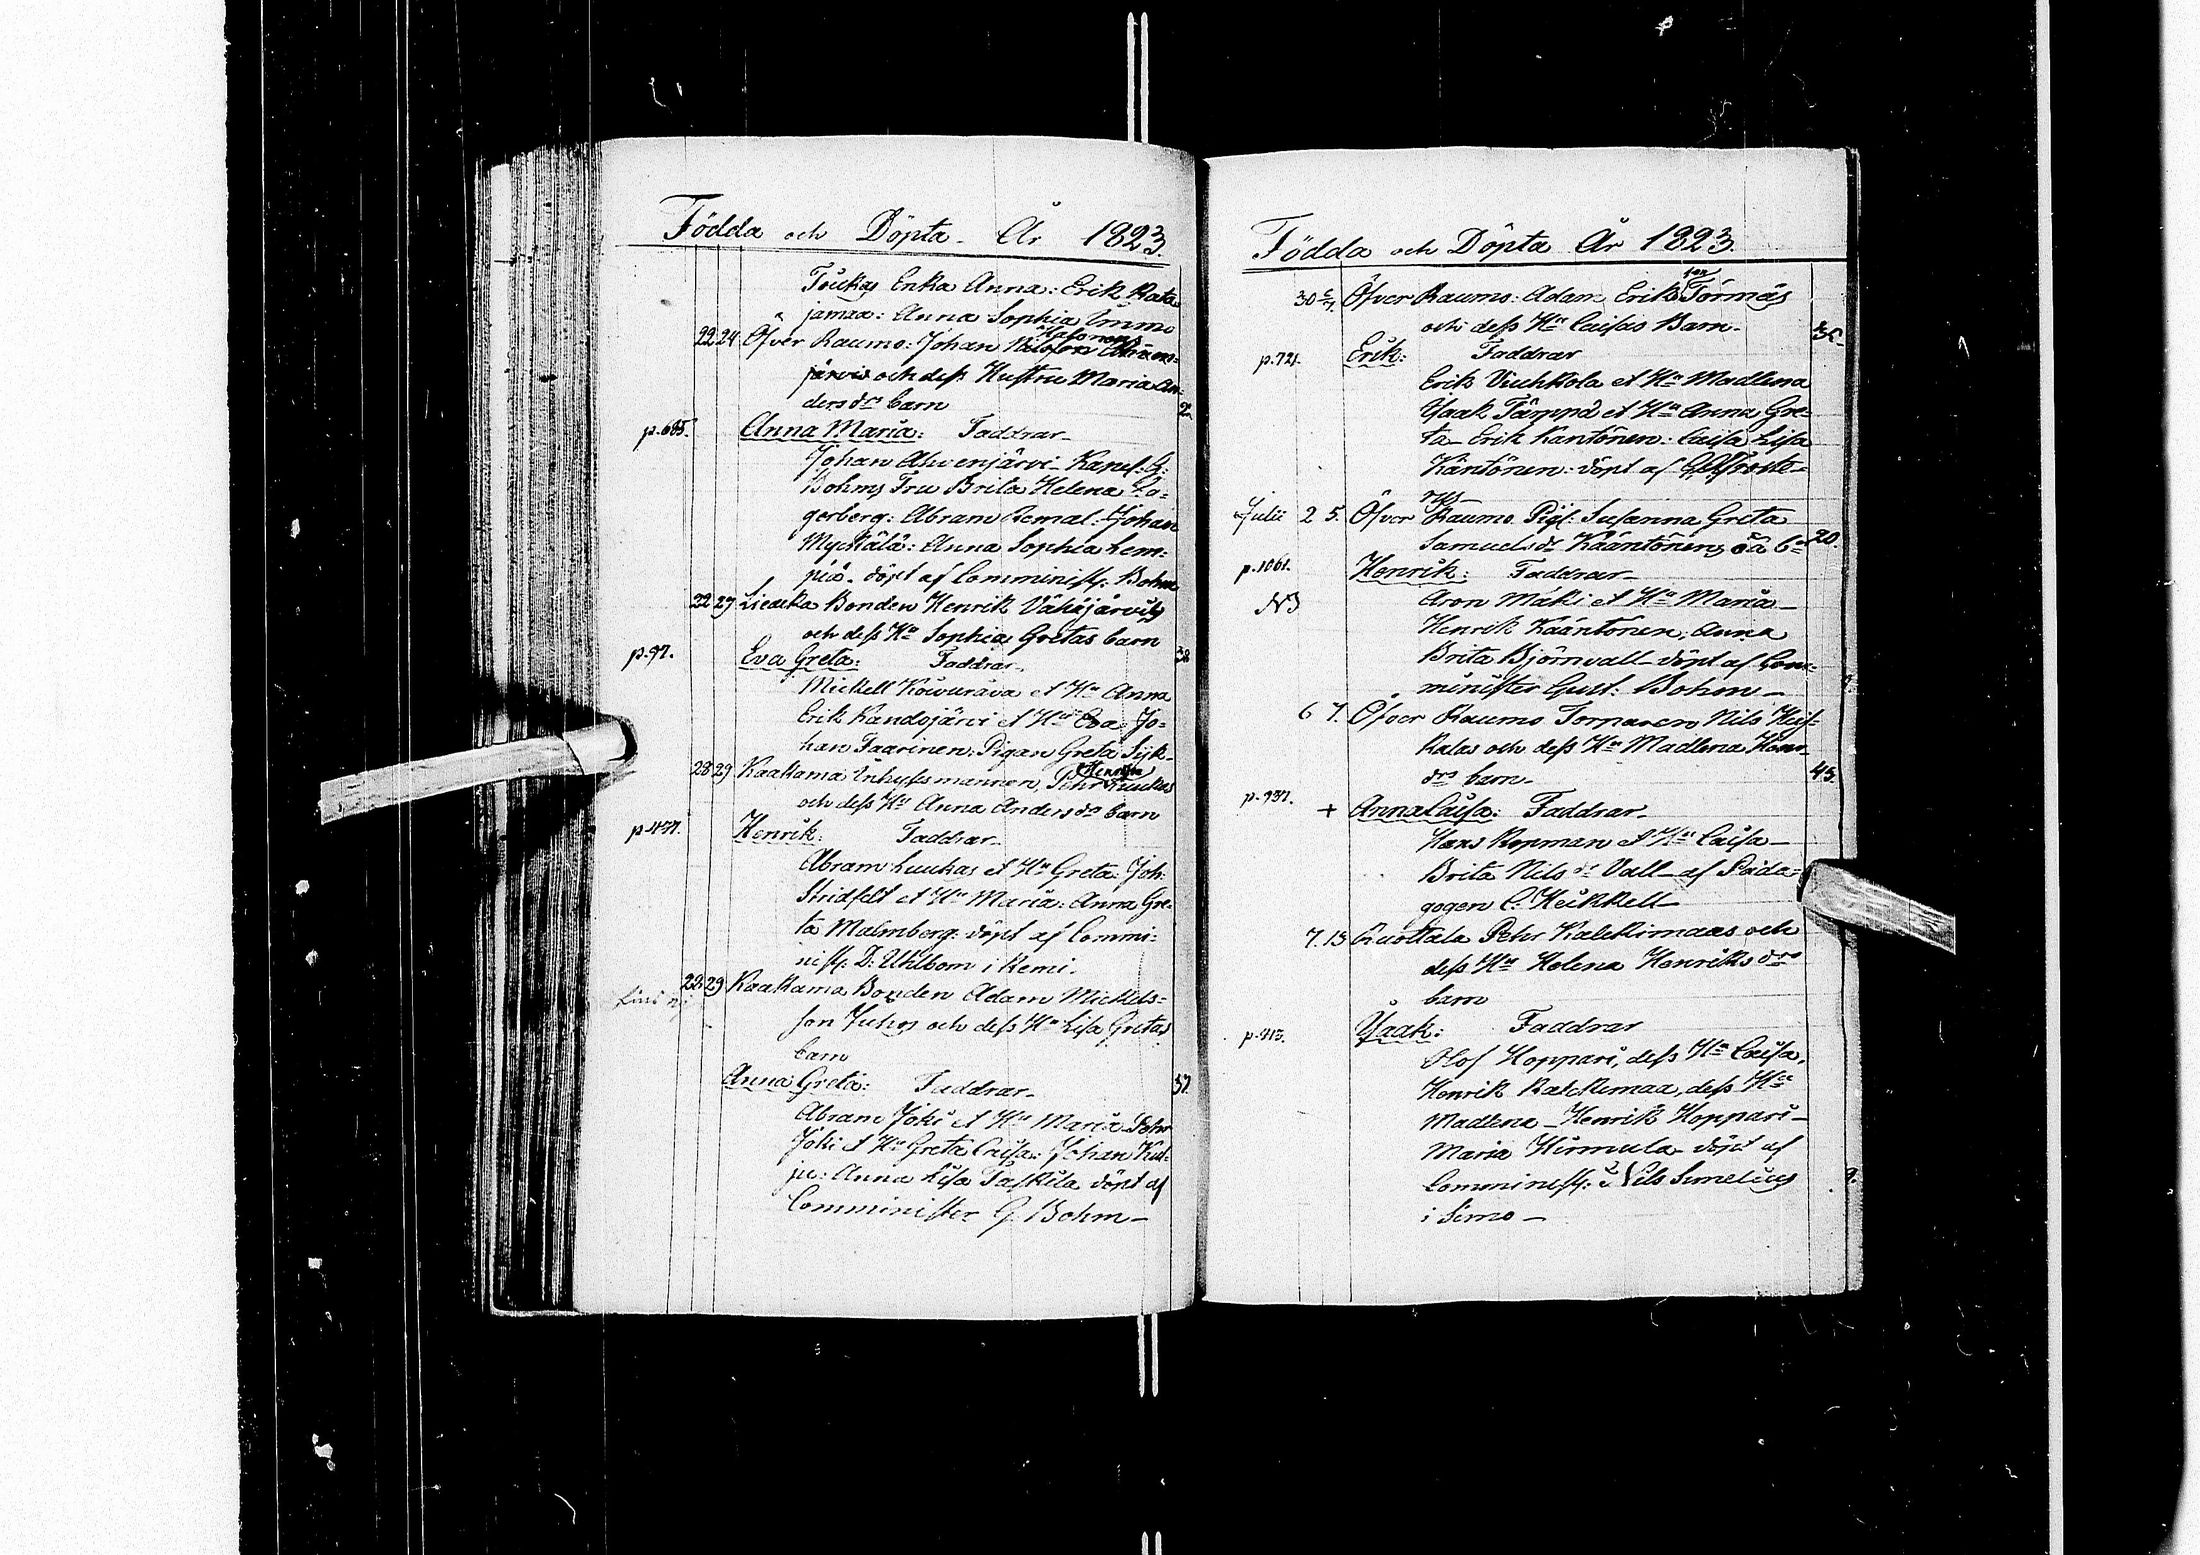 Födda och Döpta. År 1823.
Toukas Enka Anna: Erik Rata
jamaa: Anna Sophia Immo
22 24 Öfver Raumo: Johan Nilsson
järvis och dess Hustru Maria An-
ders drs barn 2
p. 685. Anna Maria: Faddrar.
Johan Ahvenjärvi. G:
Bohms Fru Brita Helena La-
gerberg: Abram Remal: Johan
Myckälä: Anna Sophia Lem-
piä. döpt af Comminist: Bohm
22 27 Liedeka Bonden Henrik Vähäjärvis
och dess Hu Sophia Gretas barn
p. 97. Eva Greta: Faddrar.
Mickell Koivurava et Hu Anna
Erik Kandojärvi et Hu Eva: Jo-
han Taarinen: Pigan Greta Sijk-
28 29 Kaakama Inhysmannen Pehr Henriks Luukas
och dess Hu Anna Anders dr barn
p. 437. Henrik: Faddrar.
Abram Luukas et Hu Greta: Joh:
Stridfelt et Hu Maria: Anna Gre-
ta Malmberg: döpt af Commi-
nist: D: Uhlbom i Kemi.
28 29 Kaakama Bonden Adam Mickels-
son Juhos och dess Hu Lisa Gretas
barn
Anna Greta: Faddrar. 37
Abram Joki et Hu Maria Pehr
Joki et Hu Greta Caisa: Johan Kul-
ju: Anna Lisa Taskila döpt af
Comminister G. Bohm
Födda och Döpta År 1823.
30 Öfver Raumo: Adam Eriks son Törmäs
och dess Hu Caisas Barn.
p. 721. Erik: Faddrar
Erik Viuhkola et Hu Madlena
Isaak Tämppä et Hu Anna Gre-
ta Erik Kantönen: Caisa Lisa
Käntönen: döpt af
rus
Julii 2 5. Öfver Raumo Pig: Susanna Greta
Samuels dr Kääntönens oä b 20.
p. 1061. Henrik: Faddrar
Aron Mäki et Hu Maria
Henrik Kääntönen, Anna
Brita Björnvall döpt af Com-
minister Gust: Bohm
6 7. Öfver Raumo Torparen Nils Heis-
kalas och dess Hu Madlena Henr
drs barn. 43.
p. 937. + Anna Caisa: Faddrar
Hans Ropman et Hu Caisa
Brita Nils dr Vall af Päda-
gogen C. Heikkell
7. 13 Ruottala Pehr Kalckimaas och
dess Hu Helena Henriks drs
barn
p. 413. Isaak: Faddrar
Olof Hoppari, dess Hu Caisa,
Henrik Kalckimaa, dess Hu
Madlena Henrik Hoppari
Maria Hirmula döpt af
Comminist: Nils Simelius
i Simo